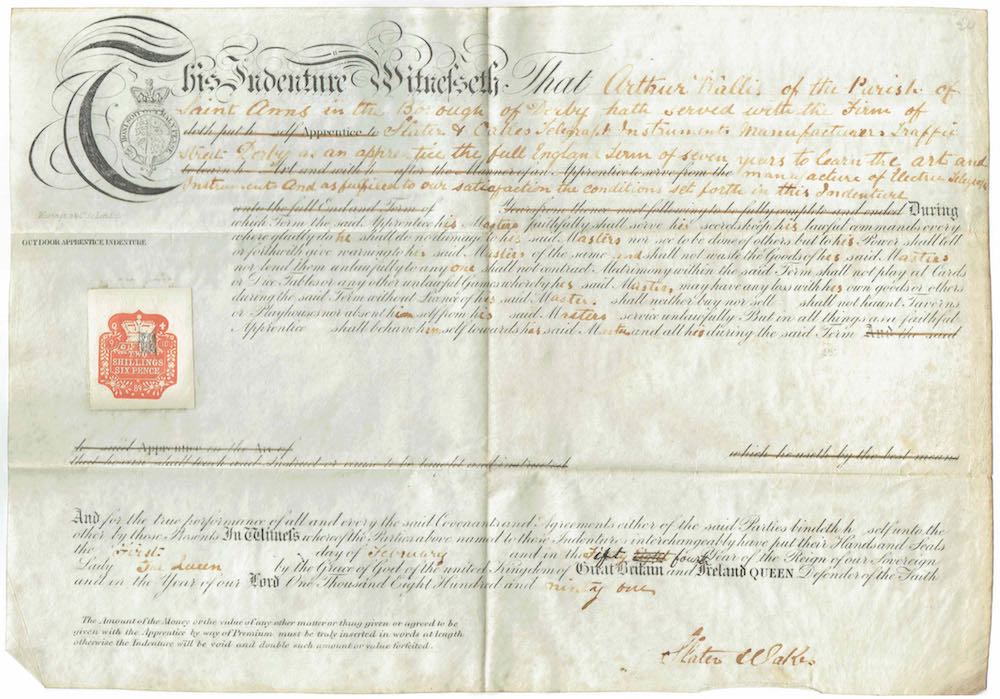 This Indenture Witnesseth That Arthur Wallis of the Parish of
Saint Anns in the Borough of Derby hath served with the Firm of
doth put h self Apprentice to Slater & Oakes Telegraph Instrument Manufacturers Traffic
Street Derby as an apprentice the full England Term of seven years to learn the art and
to learn h Art and with h after the Manner of an Apprentice to serve from the manufacture of Electric Telegraph
Instruments And as fulfilled to our satisfaction the conditions set forth in this Indenture
HONI SOIT QUI MAL Y PENSE
unto the full End and Term of Years from thence next following to be fully complete and ended During
which Term the said Apprentice his Masters faithfully shall serve his secrets keep his lawful commands every
where gladly do he shall do no damage to his said Masters nor see to be done of others but to his Power shall tell
or forthwith give warning to his said Masters of the same and shall not waste the Goods of his said Masters
nor lend them unlawfully to any one shall not contract Matrimony within the said Term shall not play at Cards
or Dice Tables or any other unlawful Games whereby his said Masters may have any loss with his own goods or others
during the said Term without Licence of his said Masters shall neither buy nor sell shall not haunt Taverns
or Playhouses nor absent himself from his said Masters service unlawfully But in all things as a faithful
Apprentice shall behave himself towards his said Masters and all his during the said Term And the said
OUTDOOR APPRENTICE INDENTURE
TWO
SHILLINGS
SIX PENCE
h said Apprentice in the Art of
which he useth by the best means
that he can shall teach and Instruct or cause to be taught and instructed
And for the true performance of all and every the said Covenants and Agreements either of the said Parties bindeth h self unto the
other by these Presents In Witness whereof the Parties above named to these Indentures interchangeably have put their Hands and Seals
the First day of February and in the Fifty eight fourth Year of the Reign of our Sovereign
Lady The Queen by the Grace of God of the united Kingdom of Great Britain and Ireland QUEEN Defender of the Faith
and in the Year of our Lord One Thousand Eight Hundred and ninety one
The Amount of the Money or the value of any other matter or thing given or agreed to be
given with the Apprentice by way of Premium must be truly inserted in words at length
otherwise the Indenture will be void and double such amount or value forfeited.
Slater & Oakes